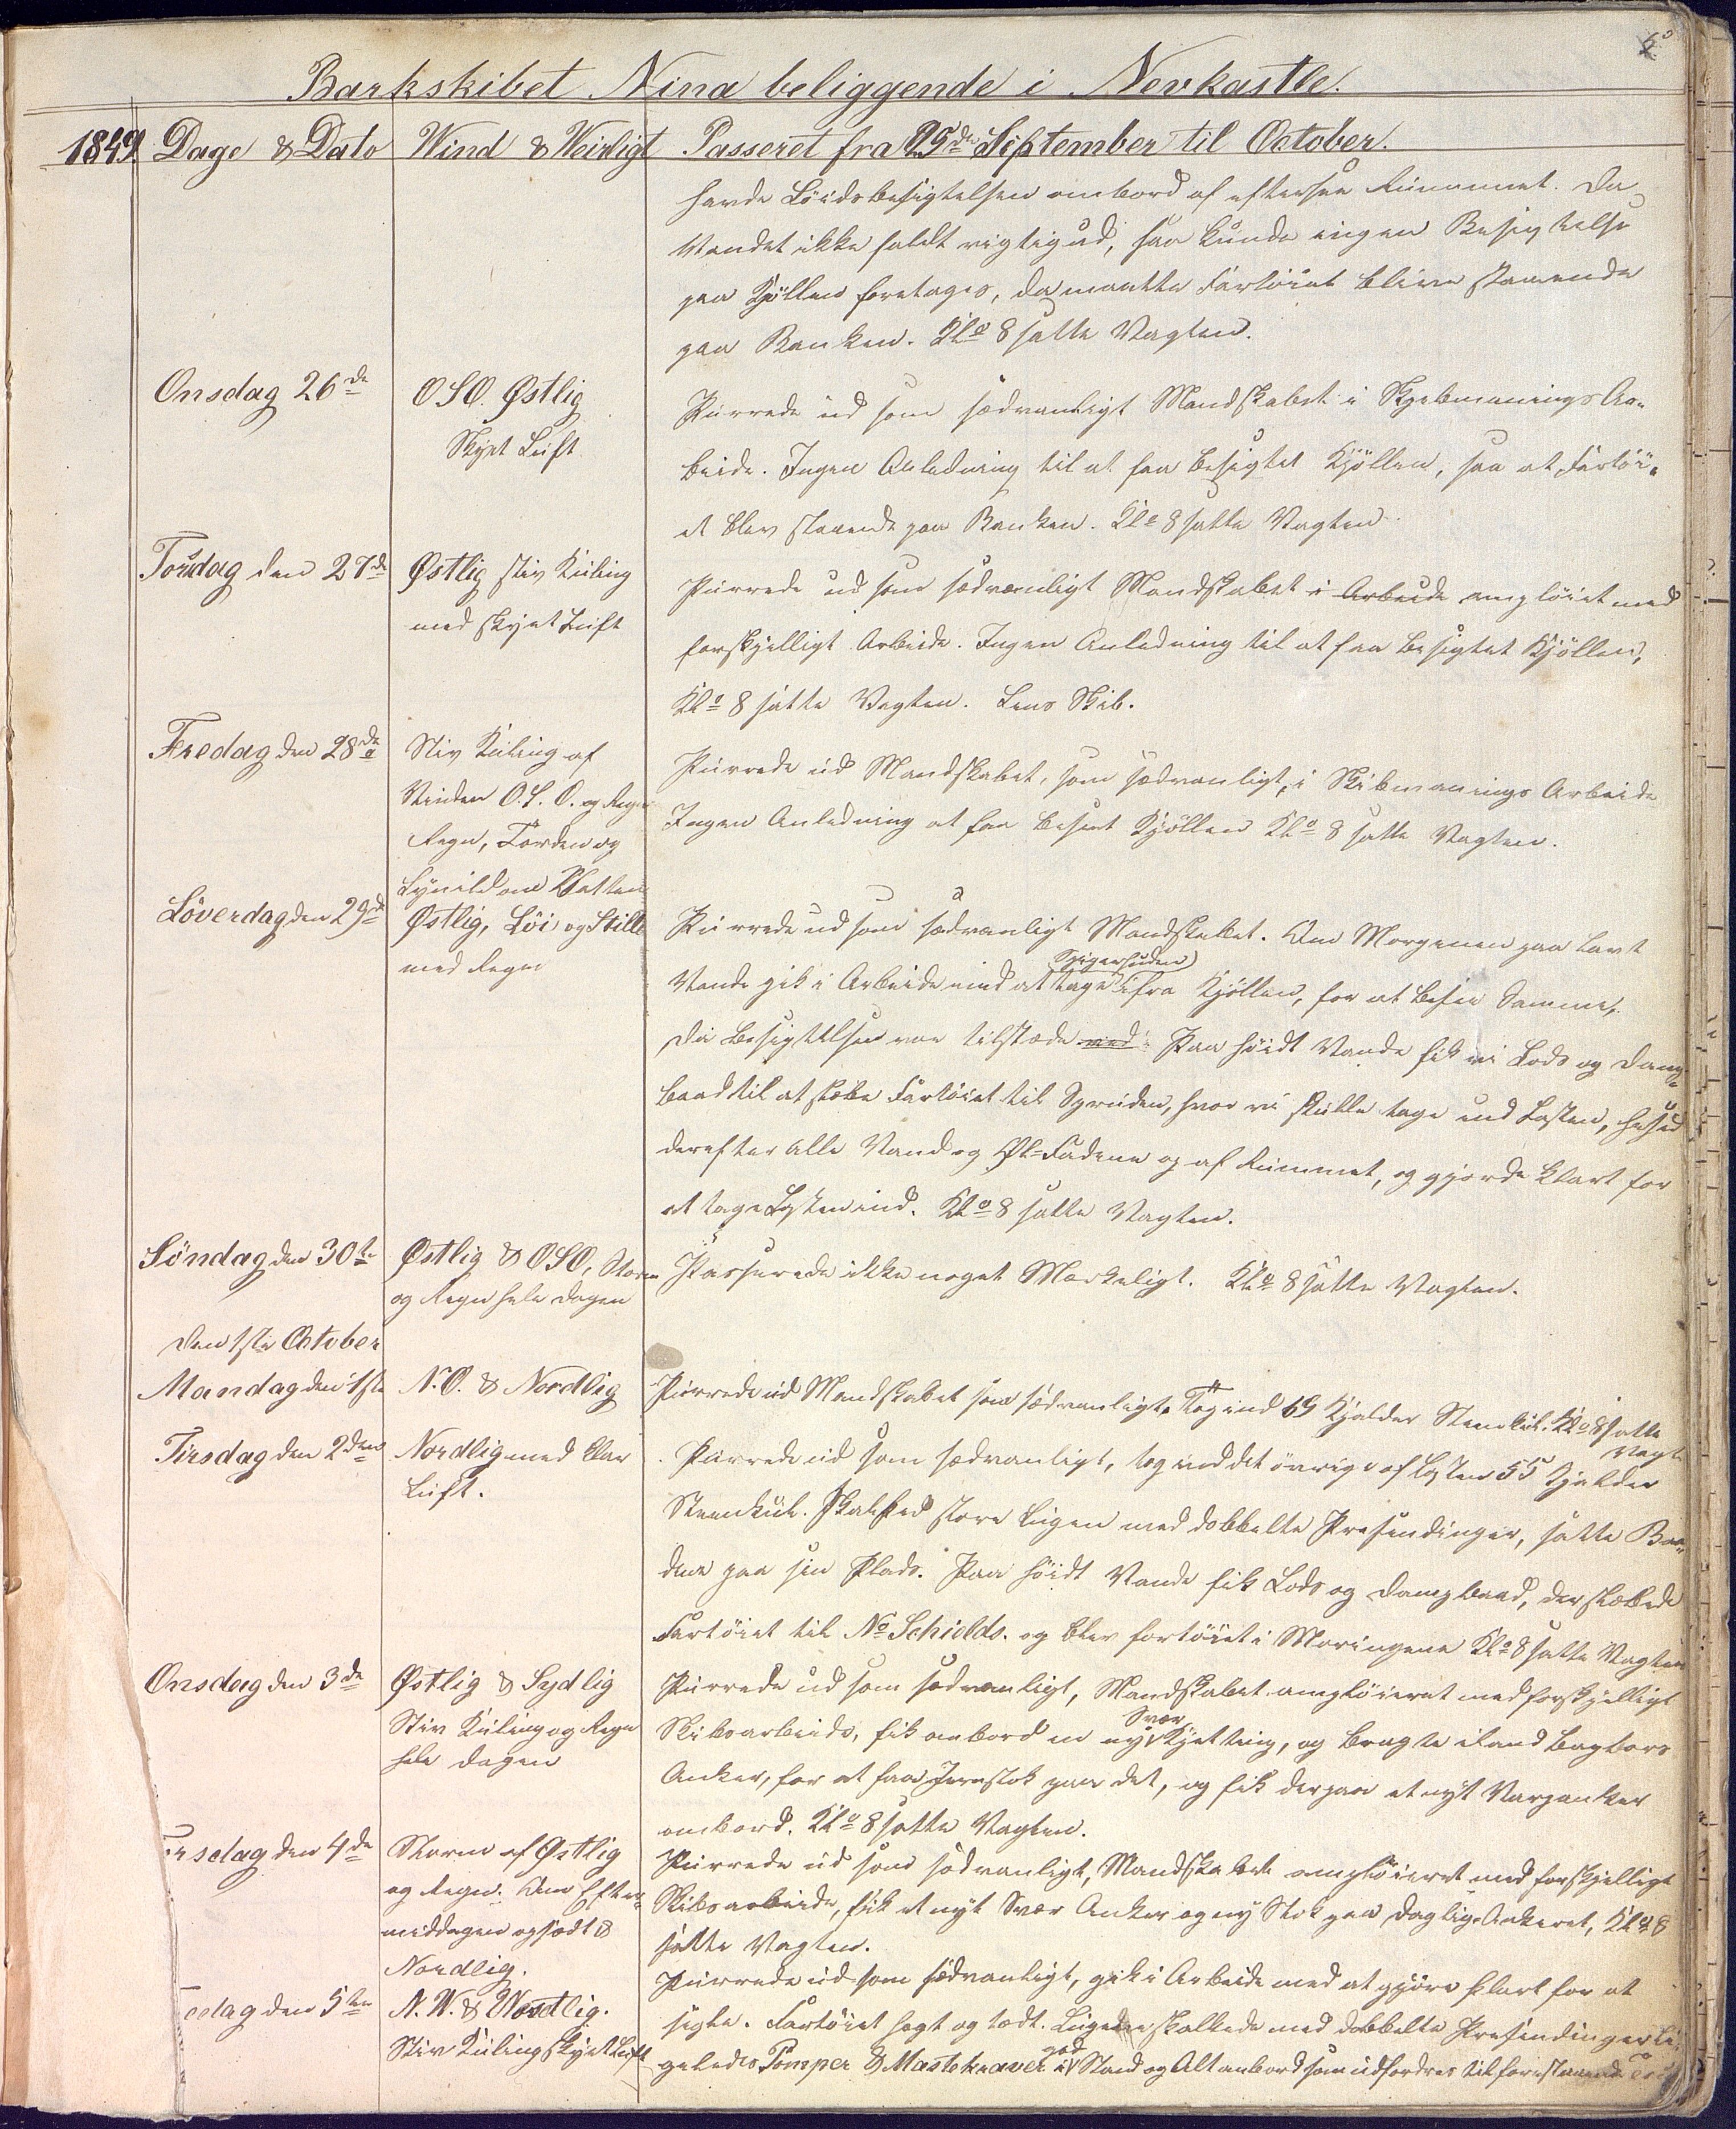 Barkskibet Nina beliggende i Nevkastle.
1849 Dage & Dato Wind & Veirligt Passeret fra 25de September til October.
havde Löidsbesigtelsen ombord at eftersee Rummet. Da
Vandet ikke faldt rigtig ud, saa kunde ingen Besigtelse
paa Kjöllen foretages, da maatte Fartöiet blive staaende
paa Banken. Klo 8 satte Vagten.
Onsdag 26de
OSO. Østlig
Skyet Luft
Purrede ud som sædvanligt Mandskabet i Skibmanings Ar-
beide. Ingen Anledning til at faa besigtet Kjöllen, saa at Fartöi-
et blev staaende paa Banken. Klo 8 satte Vagten
Torsdag den 27de
Østlig stiv Kuling
med skyet Luft
Purrede ud som sædvanligt Mandskabet i Arbeide amplöiet med
forskjelligt Arbeide. Ingen Anledning til at faa besigtet Kjöllen,
Klo 8 satte Vagten. Lens Skib.
Fredag den 28de
Stiv Kuling af
Vinden O.S.O. og Regn
Regn, Torden og
Lynild om Natten
Purrede ud Mandskabet, som sædvanligt, i Skibmanings Arbeide
Ingen Anledning at faa beseet Kjöllen Klo 8 satte Vagten.
Löverdag den 29de
Østlig, Löi og Stille
med Regn
Purrede ud som sædvanligt Mandskabet. Om Morgenen paa lavt
Vande gik i Arbeide med at tage Spigerhuden ifra Kjöllen, for at besee Samme,
da Besigtelsen var tilstæde med. Paa höidt Vande fik vi Lods og Damp-
baad til at slæbe Fartöiet til Spruden, hvor vi skulle tage ind Lasten,
derefter alle Vand og Øl-Fadene op af Rummet, og gjorde klart for
at tage Lasten ind. Klo 8 satte Vagten.
Söndag den 30te
Østlig & OSO, Storm
og Regn hele Dagen
Passerede ikke noget Mærkeligt. Klo 8 satte Vagten.
Den 1ste October
Mandag den 1ste
N.O. & Nordlig
Purrede ud Mandskabet som sædvanligt. Tog ind 64 Kjælder Steenkul. Klo 8 satte
Vagt
Tirsdag den 2den
Nordlig med klar
Luft.
Purrede ud som sædvanligt, tog ind det övrige af Lasten 55 Kjælder
Steenkul. Skalked store Lugen med dobbelte Presendinger, satte Baa-
den paa sin Plads. Paa höidt Vande fik Lods og Dampbaad, der slæbede
Fartöiet til No Schields. og blev fortöiet i Moringene Klo 8 satte Vagten
Onsdag den 3de
Østlig & Sydlig
Stiv Kuling og Regn
hele Dagen
Purrede ud som sædvanligt, Mandskabet amplöieret med forskjelligt
Skibsarbeide, fik ombord en ny Svær Kjetting, og bragte iland Bagbors
Anker, for at faa Jernstok paa det, og fik derpaa et nyt Varpanker
ombord. Klo 8 satte Vagten.
rsdag den 4de
Storm af Østlig
og Regn. Om Efter-
middagen
Nordlig.
Purrede ud som sædvanligt, Mandskabet amplöieret med forskjelligt
Skibsarbeide, fik et nyt Svær Anker og ny Stok paa Daglig-Ankeret, Klo 8
satte Vagten.
edag den 5te
N.W. & Westlig.
Stiv Kuling skyet Luft
Purrede ud som sædvanligt, gik i Arbeide med at gjöre klart for at
segle. Fartöiet tagt og tædt. Lugerne skalkede med dobbelte Presendinger li-
geledes Pomper & Mastekraver i god Stand og Alt ombord som udfordres til forestaaende